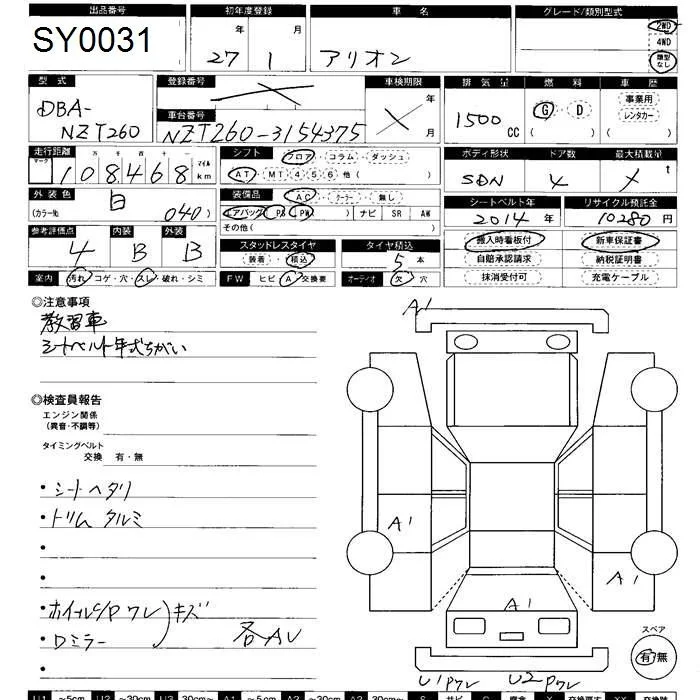 出品番号 初年度登録 車名 グレード/類別型式
SY0031 27年 1月 アリオン 2WD 4WD 類型なし
型式 登録番号 車検期限 排気量 燃料 車歴
DBA-NZT260 年 月 1500 CC G・D ( ) 事業用 レンタカー ( )
車台番号
NZT260-3154375
走行距離 シフト フロア・コラム・ダッシュ ボディ形状 ドア数 最大積載量
マーク 十万 万 千 百 十 マイル
108468 km AT・MT 4 5 6 他( ) SDN 4 t
外装色 装備品 AC・クーラー・無し シートベルト年 リサイクル預託金
(カラーNo. 白 040) エアバック( PS PW ) ナビ SR AW 2014年 10280円
その他( )
参考評価点 内装 外装 スタッドレスタイヤ タイヤ積込 搬入時看板付 新車保証書
4 B B 装着・積込 5本 自賠承認請求 納税証明書
室内 汚れ・コゲ・穴・スレ・破れ・シミ FW ヒビ A 交換要 オーディオ 欠 穴 抹消受付可 充電ケーブル
◎注意事項
教習車
シートベルト年式ちがい
◎検査員報告
エンジン関係
(異音・不調等)
タイミングベルト
交換 有・無
・シートヘタリ
・トリム タルミ
・
・
・ホイールC/Pワレ キズ
・ロミラー 各AU
・
A1
A1
A1
A1
U1Pワレ U2Pワレ
スペア
有・無
U1 ~5cm U2 ~30cm U3 30cm~ A1 ~5cm A2 ~30cm A3 30cm~ S サビ C 腐食 X 交換要 XX 交換済